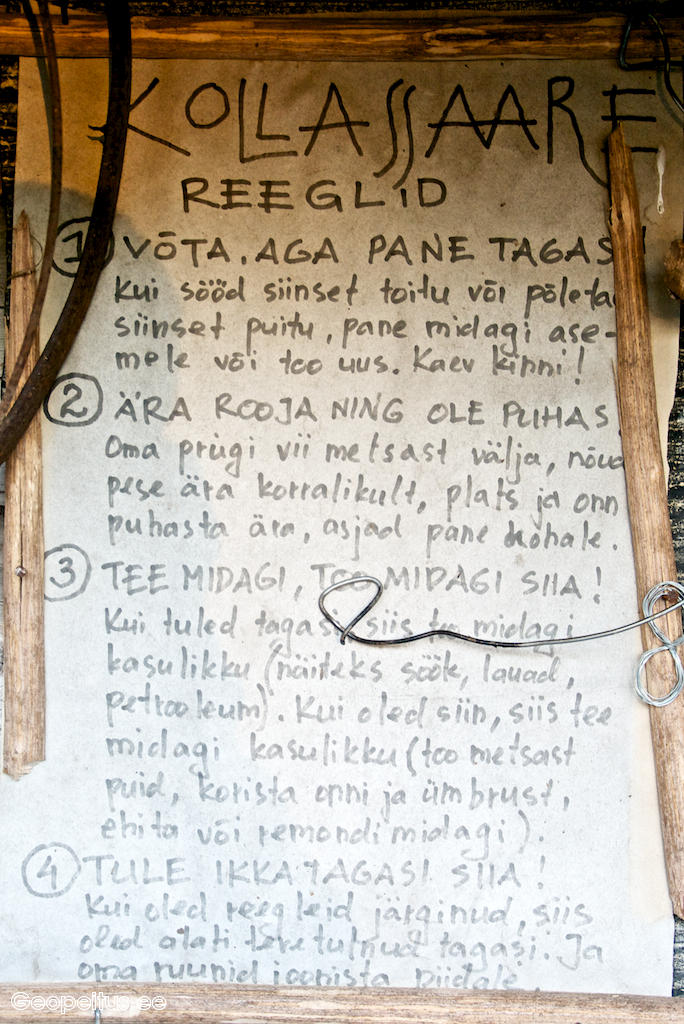 KOLLASSAARE
REEGLID
1 VÕTA, AGA PANE TAGASI!
Kui sööd siinset toitu või põletad
siinset puitu, pane midagi ase-
mele või too uus. Kaev kinni!
2 ÄRA ROOJA NING OLE PUHAS!
Oma prügi vii metsast välja, nõud
pese ära korralikult, plats ja onn
puhasta ära, asjad pane kohale.
3 TEE MIDAGI, TOO MIDAGI SIIA!
Kui tuled tagasi, siis too midagi
kasulikku (näiteks söök, lauad,
petrooleum). Kui oled siin, siis tee
midagi kasulikku (too metsast
puid, korista onni ja ümbrust,
ehita või remondi midagi).
4 TULE IKKA TAGASI SIIA!
Kui oled reegleid järginud, siis
oled alati teretulnud tagasi. Ja
oma ruunid joonista piidale.
Geopeitus.ee